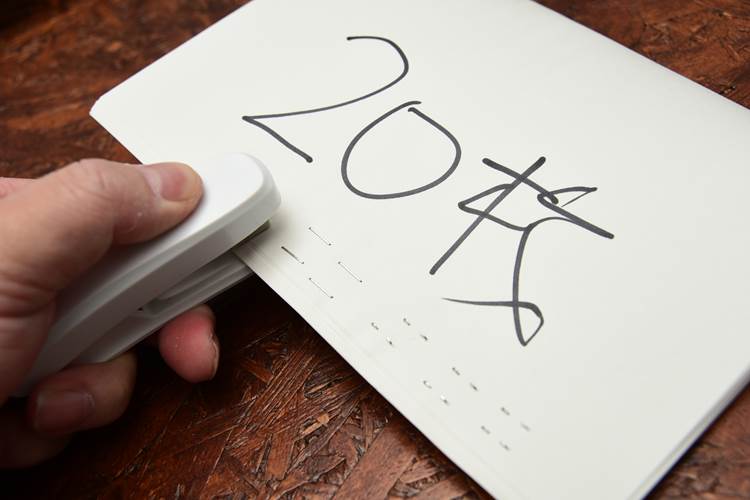 20枚